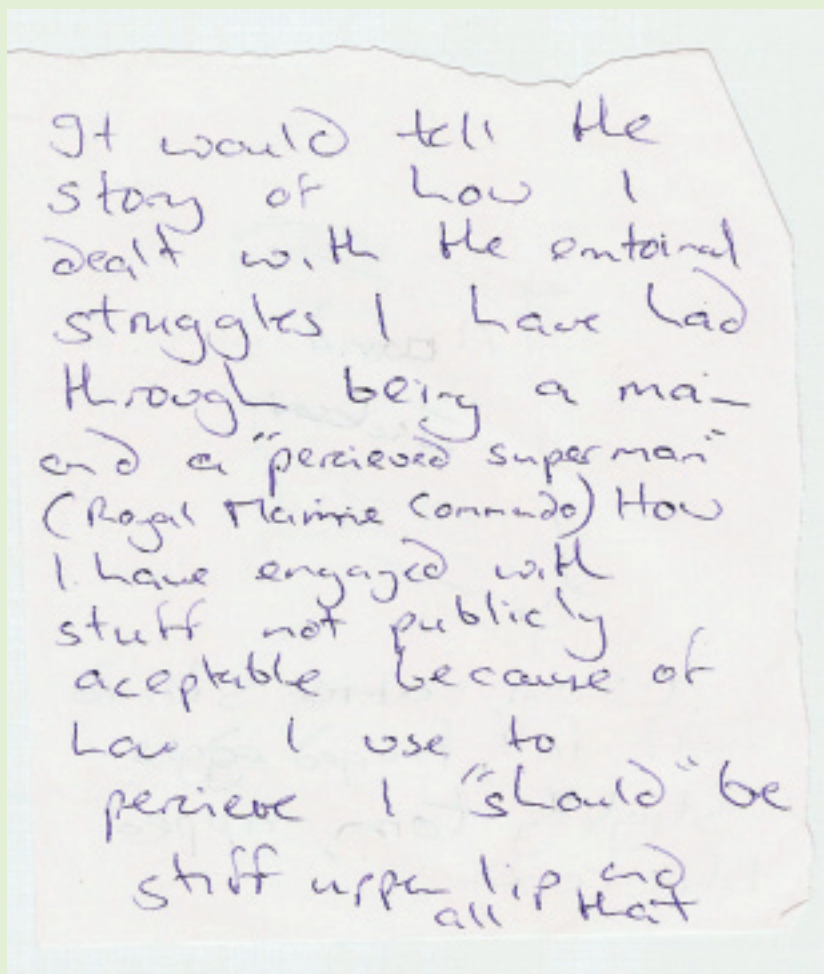 It would tell the
story of how I
dealt with the emtoinal
struggles I have had
through being a man
and a "percieved superman"
(Royal Marine Commado) How
I have engaged with
stuff not publicly
aceptable because of
how I use to
percieve I "should" be
stiff upper lip and
all that